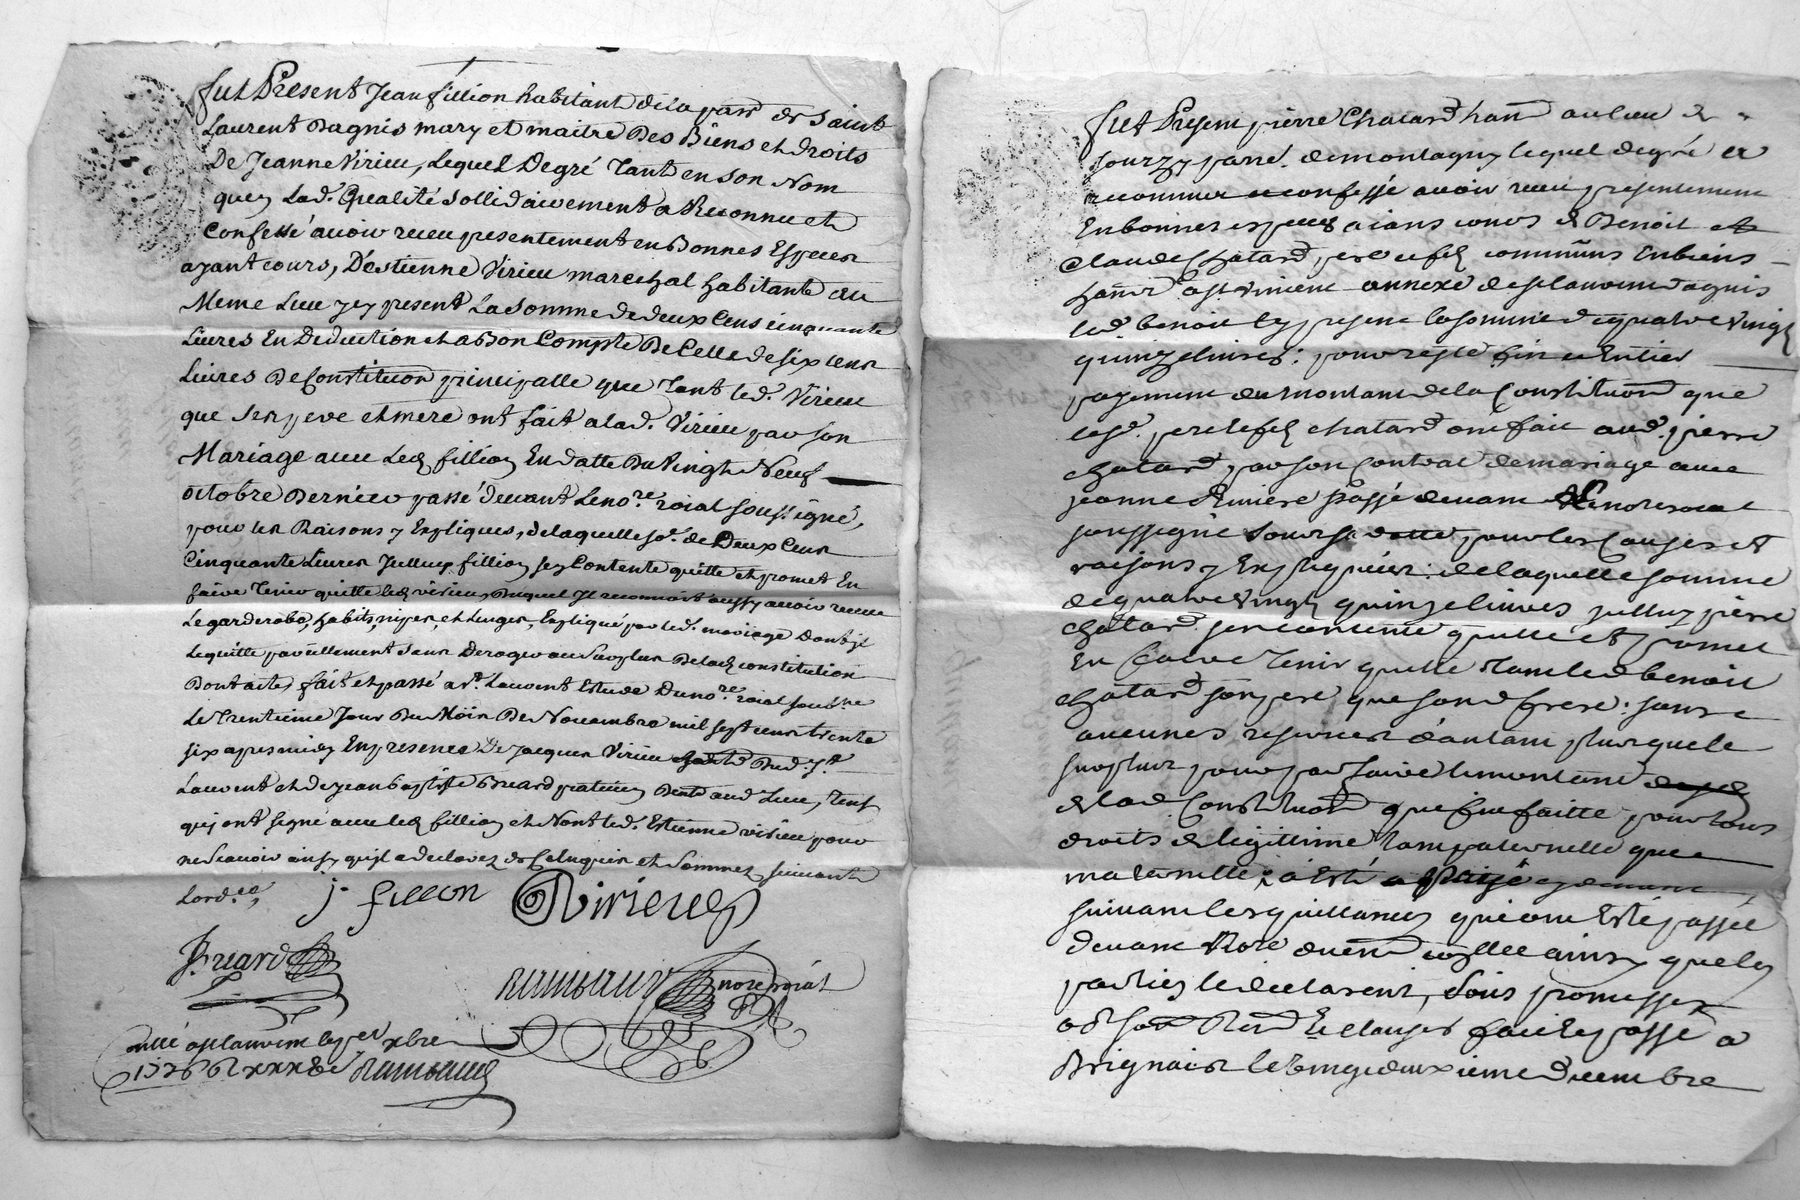 fut Present Jean fillion habitant de la parr. de Saint
Laurent Dagnis mary et maitre Des Biens et droits
De Jeanne Virieu, Lequel De gré Tant en son Nom
quen Lad. Qualité sollidairement a Reconnu et
Confessé avoir receu presentement en Bonnes Especes
ayant cours, D'estienne Virieu marechal habitant du
Meme Lieu y present La somme de deux Cens cinquante
Livres En Deduction et a Bon Compte De Celle de six cens
Livres De Constitution principalle que Tant led. Virieu
que ses pere et mere ont fait a lad. Virieu par son
Mariage avec Led. fillion En datte Du Vingt Neuf
octobre Dernier passé devant Le nore. roial soussigné,
pour les Raisons y Expliquées, de laquelle so. de Deux Cens
Cinquante Livres Jcelluy fillion sen Contente quitte et promet En
faire Tenir quitte led. virieu, Duquel Jl reconnoit aussy avoir receu
Le garderobe, habits, nipes, et Linges, Expliqué par led. mariage Dont jl
Le quitte pareillement sans Deroger au Surplus De lad. constitution
Dont acte, fait et passé a st. Laurent Estude Du nore. roial sousne.
Le Trentieme Jour Du Mois De Novembre mil sept cens trente
six apres midy En presence De Jacques Virieu Dud. St.
Laurent et de Jean Baptiste Bruard praticien Dud. Lieu, Tems
qui ont signé avec led. fillion et Non led. Estienne virieu pour
ne scavoir ainsy quil a declarez de Ce Enquis et Sommez suivant
Lord.ce,
j. fillion Virieu
Bruard
Rambaud nore roial
a st laurent le xbre
1736 Rambaud
fut Present pierre Chatard han au lieu de
sourzy parre. de montagny lequel de gré a
reconnue et confessé avoir receu presentement
En bonnes especes aians cours de Benoit et
Claude Chatard, pere et fils communs En biens
han a st vincent annexe de st laurent dagnis
led. benoit Cy present la somme de quatre vingt
quinze livres: pour reste fin et Entier
payement du montant de la Constitution que
lesd. pere et fils chatard ont fait aud. pierre
chatard, par son Contrat de mariage avec
jeanne Riviere passé devant le nore roial
soussigné sous sa datte, pour les Causes et
raisons y Expliquées: de laquelle somme
de quatre vingt quinze livres jcelluy pierre
chatard sen contente quitte et promet
En faire Tenir quitte Tant led benoit
chatard son pere, que sond frere: sans
aucunes reserves d'autant plus que le
surplus pour parfaire le montant
de lad. Constitution que fut faitte pour tous
droits de legitime Tant paternelle que
maternelle; a Esté cy devant
suivant les quittances qui ont Esté passée
devant Nore ainsy que les
parties le declarent, sous promesses
Et clauses fait et passé a
Brignais le vingt deuxieme decembre